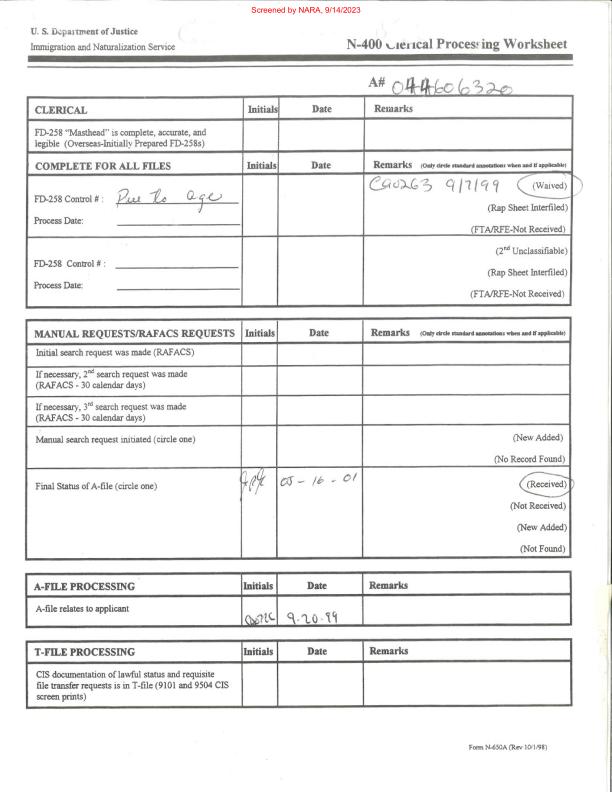 Screened by NARA, 9/14/2023
U. S. Department of Justice
Immigration and Naturalization Service
N-400 Clerical Processing Worksheet
A# 044606320
CLERICAL Initials Date Remarks
FD-258 "Masthead" is complete, accurate, and
legible (Overseas-Initially Prepared FD-258s)
COMPLETE FOR ALL FILES Initials Date Remarks (Only circle standard annotations when and if applicable)
9/7/99 (Waived)
FD-258 Control # : Due to age
(Rap Sheet Interfiled)
Process Date:
(FTA/RFE-Not Received)
(2nd Unclassifiable)
FD-258 Control # :
(Rap Sheet Interfiled)
Process Date:
(FTA/RFE-Not Received)
MANUAL REQUESTS/RAFACS REQUESTS Initials Date Remarks (Only circle standard annotations when and if applicable)
Initial search request was made (RAFACS)
If necessary, 2nd search request was made
(RAFACS - 30 calendar days)
If necessary, 3rd search request was made
(RAFACS - 30 calendar days)
Manual search request initiated (circle one) (New Added)
(No Record Found)
Final Status of A-file (circle one) 05-16-01 (Received)
(Not Received)
(New Added)
(Not Found)
A-FILE PROCESSING Initials Date Remarks
A-file relates to applicant
9-20-99
T-FILE PROCESSING Initials Date Remarks
CIS documentation of lawful status and requisite
file transfer requests is in T-file (9101 and 9504 CIS
screen prints)
Form N-650A (Rev 10/1/98)